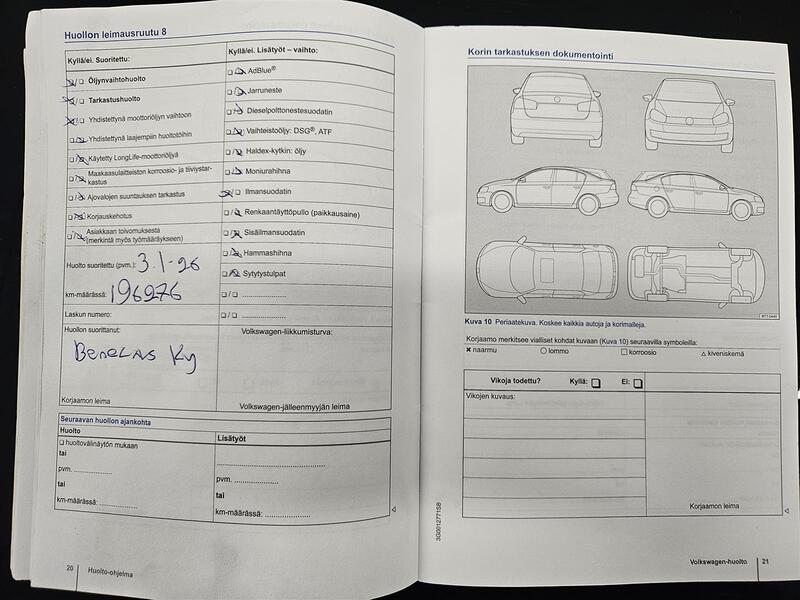 Huollon leimausruutu 8
Kyllä/ei. Suoritettu:
☒/☐ Öljynvaihtohuolto
☒/☐ Tarkastushuolto
☒/☐ Yhdistettynä moottoriöljyn vaihtoon
☐/☒ Yhdistettynä laajempiin huoltotöihin
☐/☒ Käytetty LongLife-moottoriöljyä
☐/☒ Maakaasulaitteiston korroosio- ja tiiviystar-
kastus
☐/☒ Ajovalojen suuntauksen tarkastus
☐/☒ Korjauskehotus
☐/☒ Asiakkaan toivomuksesta
(merkintä myös työmääräykseen)
Huolto suoritettu (pvm.): 3.1-26
km-määrässä: 196276
Laskun numero:
Huollon suorittanut:
Benecas Ky
Korjaamon leima
Kyllä/ei. Lisätyöt – vaihto:
☐/☒ AdBlue®
☐/☒ Jarruneste
☐/☒ Dieselpolttonestesuodatin
☐/☒ Vaihteistoöljy: DSG®, ATF
☐/☒ Haldex-kytkin: öljy
☐/☒ Moniurahihna
☒/☐ Ilmansuodatin
☐/☒ Renkaantäyttöpullo (paikkausaine)
☐/☒ Sisäilmansuodatin
☐/☒ Hammashihna
☐/☒ Sytytystulpat
☐/☐ ....................
☐/☐ ....................
Volkswagen-liikkumisturva:
Volkswagen-jälleenmyyjän leima
Seuraavan huollon ajankohta
Huolto
☐ huoltovälinäytön mukaan
tai
pvm. ..................
tai
km-määrässä: ..................
Lisätyöt
..................................
pvm. ....................
tai
km-määrässä: ....................
20 Huolto-ohjelma
Korin tarkastuksen dokumentointi
Kuva 10 Periaatekuva. Koskee kaikkia autoja ja korimalleja.
Korjaamo merkitsee vialliset kohdat kuvaan (Kuva 10) seuraavilla symboleilla:
✖ naarmu ○ lommo □ korroosio △ kiveniskemä
Vikoja todettu? Kyllä: ☐ Ei: ☐
Vikojen kuvaus:
Korjaamon leima
3G0012771SB
Volkswagen-huolto 21